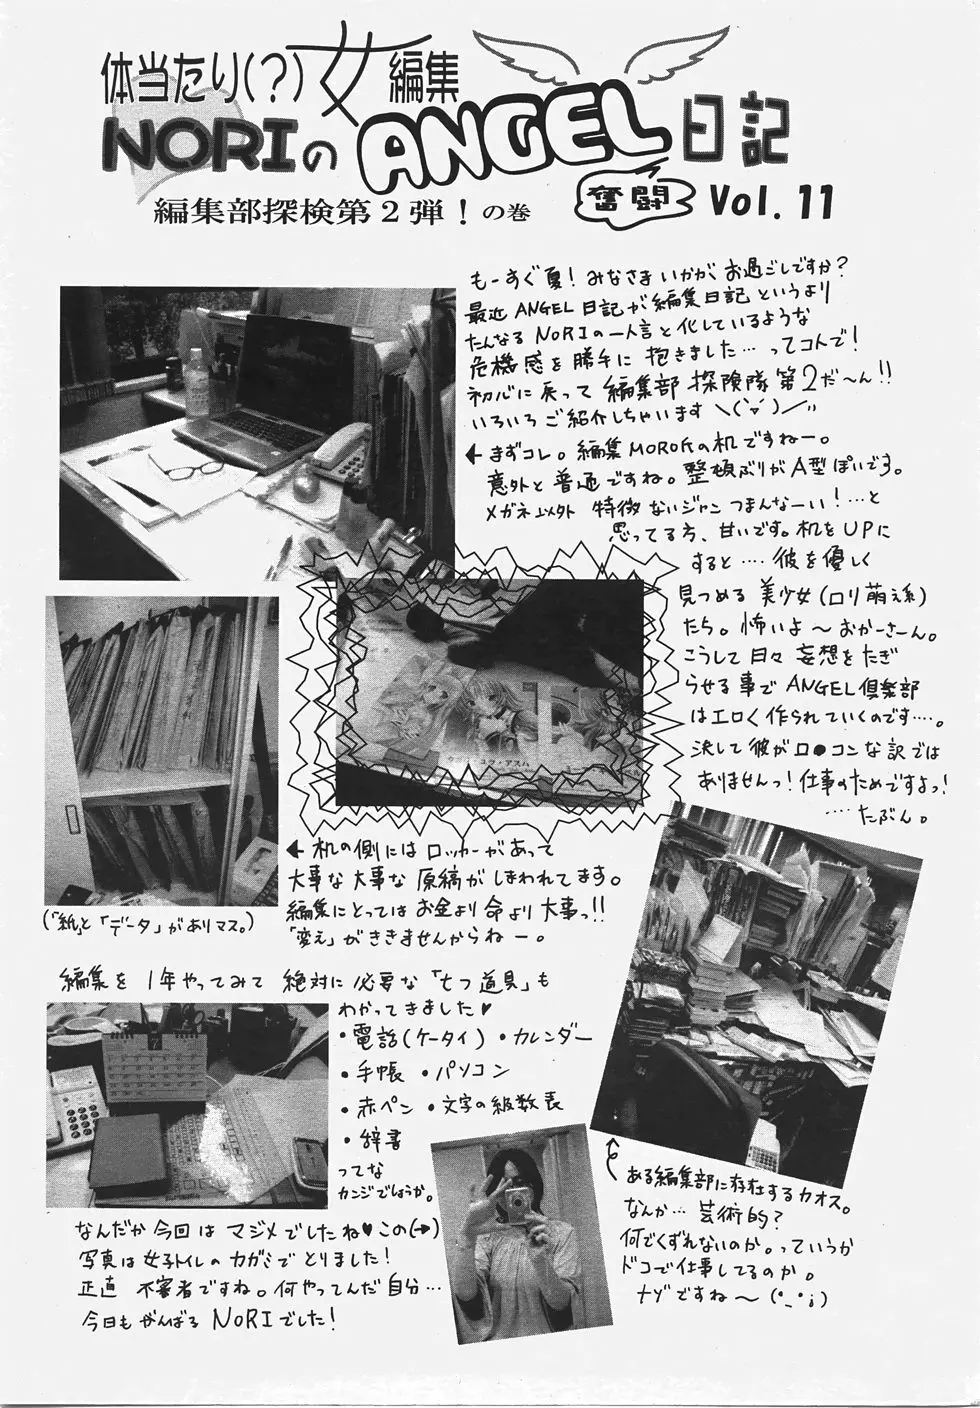 体当たり(?)女編集
NORIのANGEL日記
奮闘
Vol. 11
編集部探検第2弾!の巻
もーすぐ夏!みなさまいかがお過ごしですか?
最近ANGEL日記が編集日記というより
たんなるNORIの一人言と化しているような
危機感を勝手に抱きました…ってコトで!
初心に戻って編集部探険隊第2だ〜ん!!
いろいろご紹介しちゃいます
←まずコレ。編集MORO氏の机ですねー。
意外と普通ですね。整頓ぶりがA型ぽいです。
メガネ以外特徴ないジャンつまんなーい!…と
思ってる方、甘いです。机をUPに
すると…彼を優しく
見つめる美少女(ロリ萌え系)
たち。怖いよ〜おかーさーん。
こうして日々妄想をたぎ
らせる事でANGEL倶楽部
はエロく作られていくのです…。
決して彼がロ●コンな訳では
ありませんっ!仕事のためですよっ!
…たぶん。
←机の側にはロッカーがあって
大事な大事な原稿がしまわれてます。
編集にとってはお金より命より大事っ!!
「変え」がききませんからねー。
(「紙」と「データ」がありマス。)
編集を1年やってみて絶対に必要な「七つ道具」も
わかってきました♥
・電話(ケータイ)・カレンダー
・手帳・パソコン
・赤ペン・文字の級数表
・辞書
ってな
カンジでしょうか。
7
なんだか今回はマジメでしたね♥この(→)
写真は女子トイレのカガミでとりました!
正直不審者ですね。何やってんだ自分…
今日もがんばるNORIでした!
ある編集部に存在するカオス。
なんか…芸術的?
何でくずれないのか。っていうか
ドコで仕事してるのか。
ナゾですね〜(°_°;)